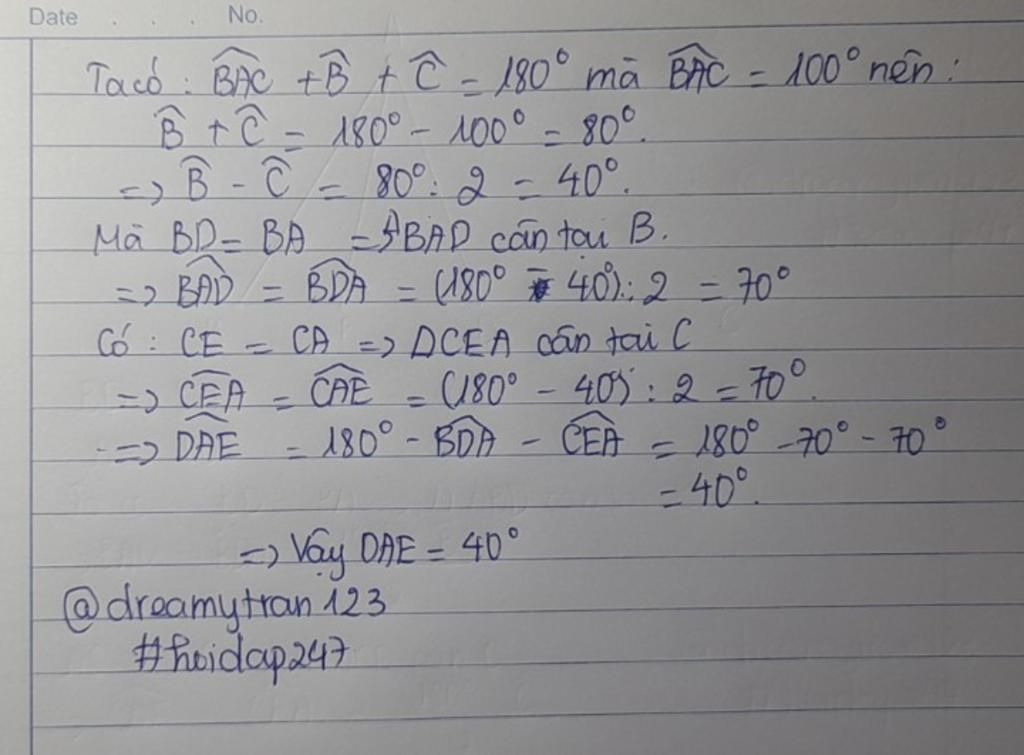 Date . . . No.
Ta có : BAC + B + C = 180° mà BAC = 100° nên :
B + C = 180° - 100° = 80°.
=> B - C = 80° : 2 = 40°.
Mà BD = BA => ΔBAD cân tại B.
=> BAD = BDA = (180° - 40°) : 2 = 70°
Có : CE = CA => DCEA cân tại C
=> CEA = CAE = (180° - 40°) : 2 = 70°.
=> DAE = 180° - BDA - CEA = 180° - 70° - 70°
= 40°.
=> Vậy DAE = 40°
@dreamytran123
#hoidap247